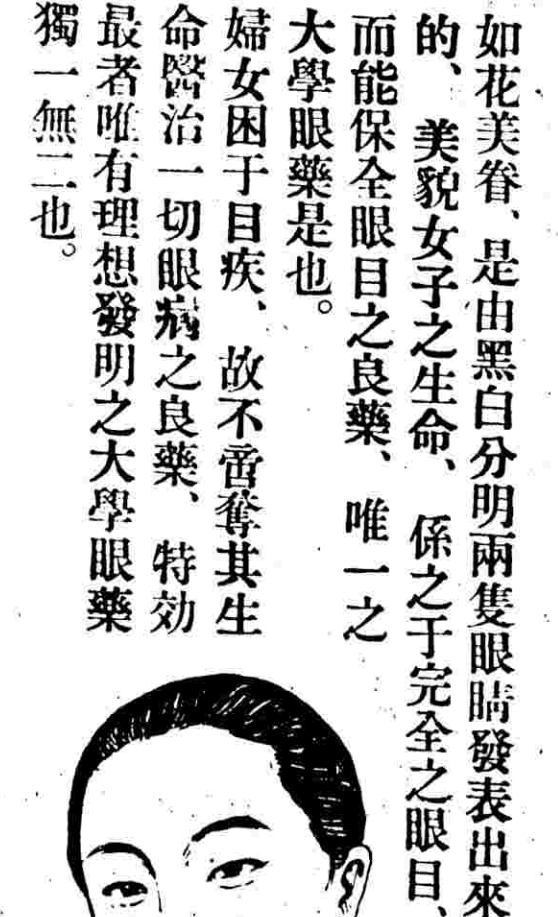 如花美眷、是由黑白分明兩隻眼睛發表出來
的、美貌女子之生命、係之于完全之眼目、
而能保全眼目之良藥、唯一之
大學眼藥是也。
婦女困于目疾、故不啻奪其生
命醫治一切眼病之良藥、特効
最者唯有理想發明之大學眼藥
獨一無二也。